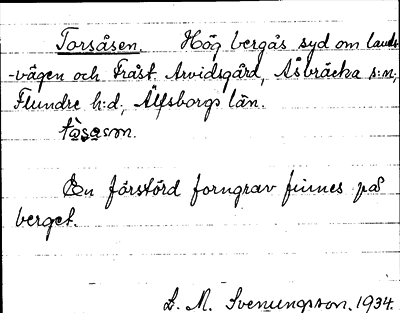 Torsåsen. Hög bergås syd om lands-
-vägen och Fråst. Arvidsgård, Åsbräcka s:n,
Flundre h:d, Älfsborgs län.
tå̀sasən.
En förstörd forngrav finnes på
berget.
L. M. Svenungsson. 1934.